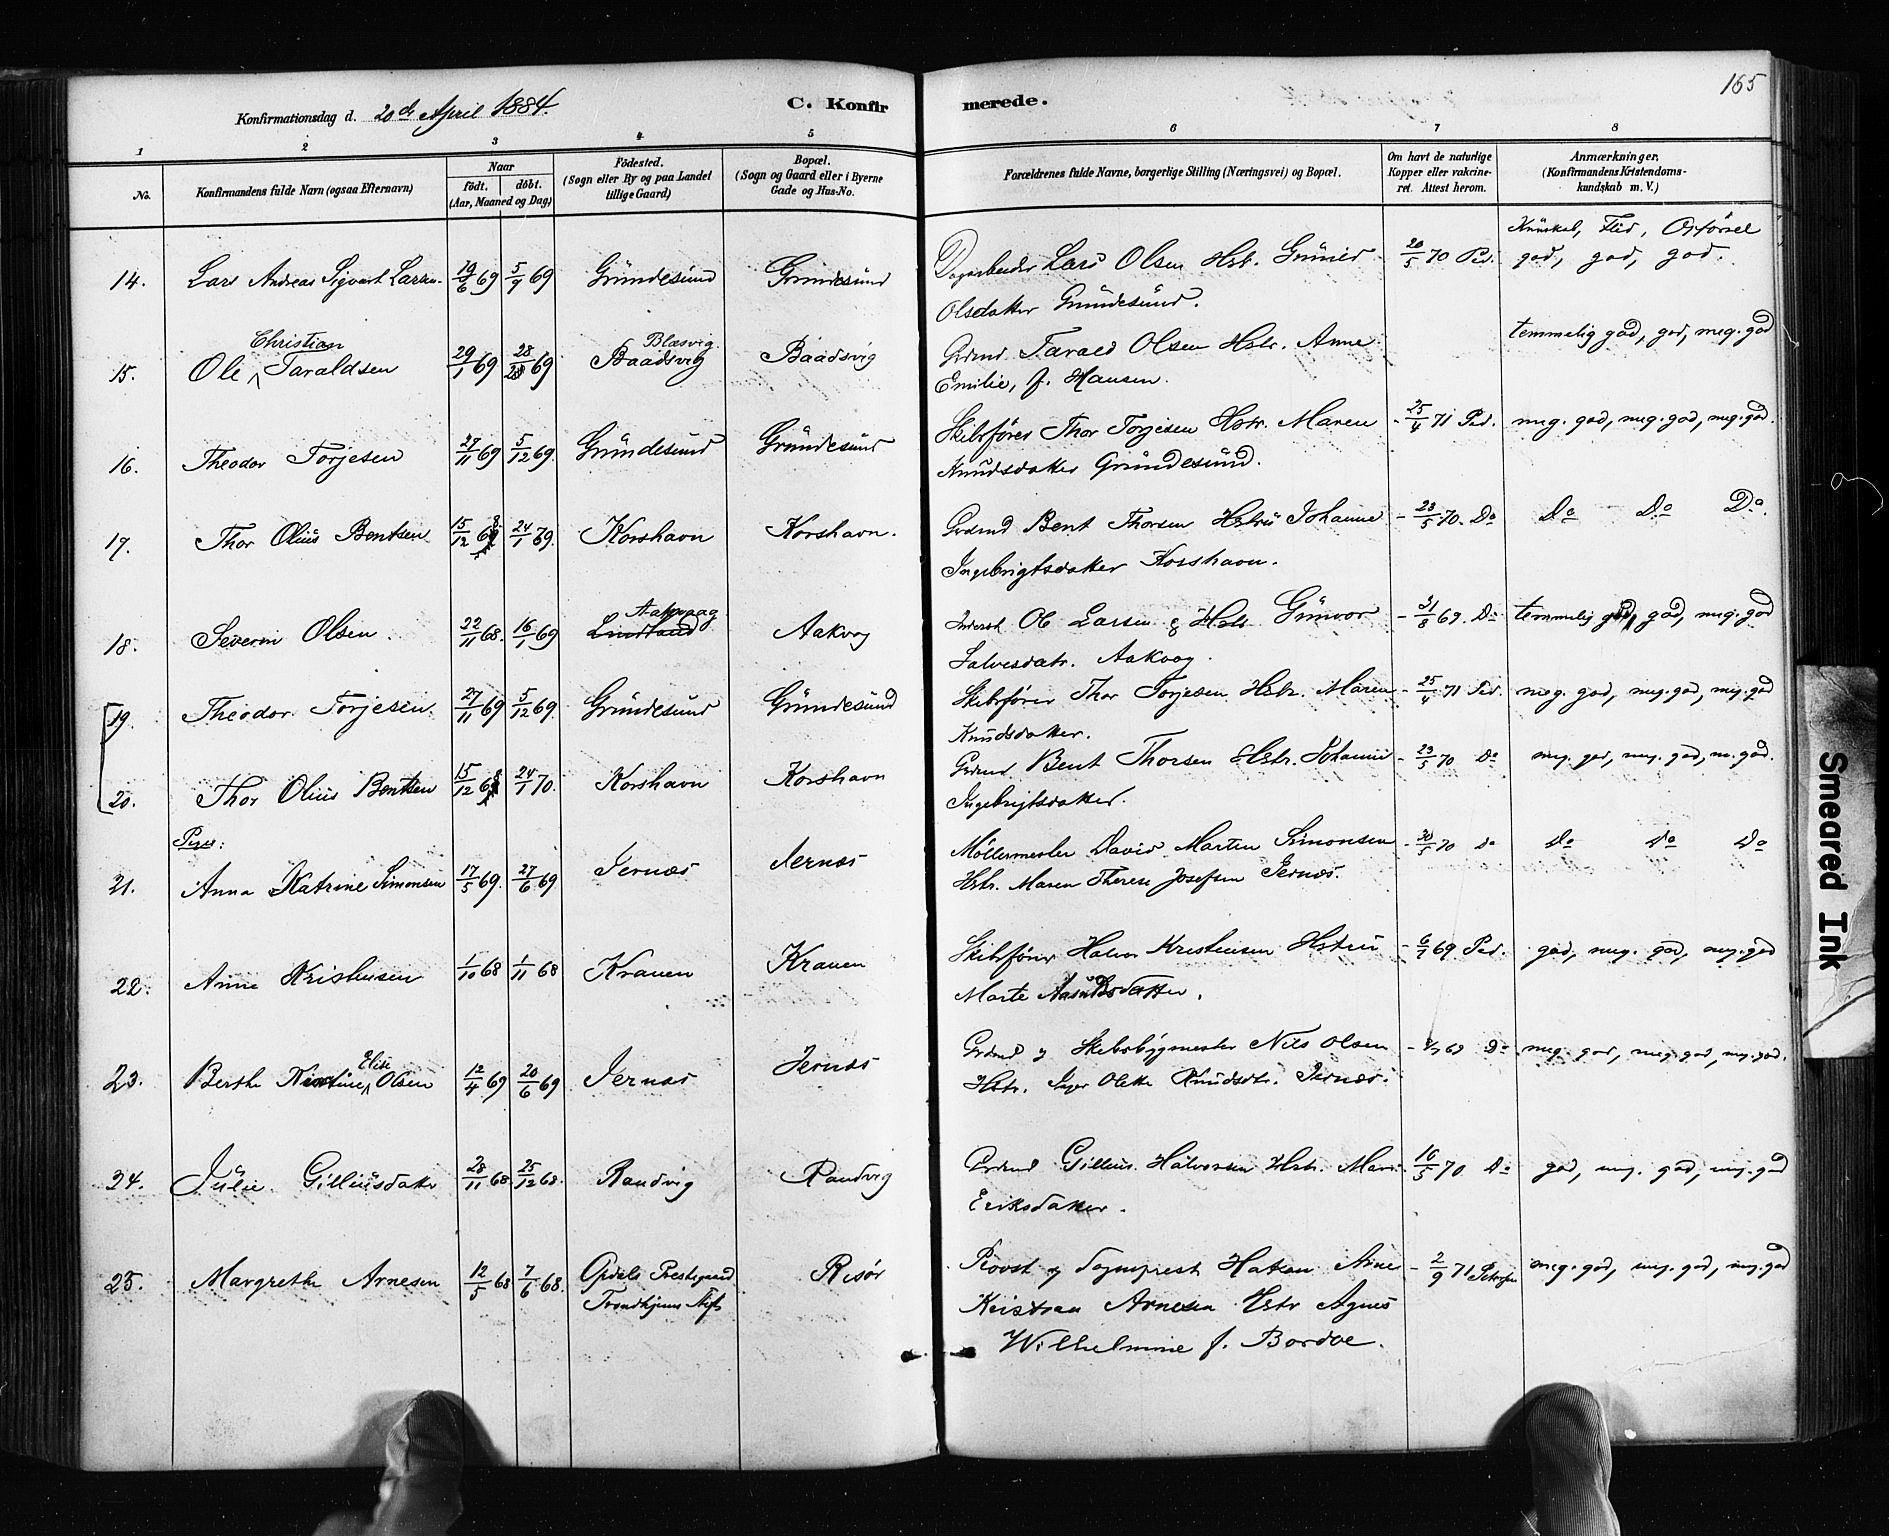 165
Konfirmationsdag d. 20de April 1884.
C. Konfirmerede.
1 2 3 4 5 6 7 8
No.
Konfirmandens fulde Navn (ogsaa Efternavn)
Naar
født. døbt.
(Aar, Maaned og Dag)
Fødested.
(Sogn eller By og paa Landet
tillige Gaard)
Bopæl.
(Sogn og Gaard eller i Byerne
Gade og Hus-No.
Forældrenes fulde Navne, borgerlige Stilling (Næringsvei) og Bopæl.
Om havt de naturlige
Kopper eller vakcine-
ret. Attest herom.
Anmærkninger.
(Konfirmandens Kristendoms-
kundskab m. V.)
Kundskab, Flid, Opførsel
14. Lars Andreas Sigvart Larsen. 19/6 69 5/9 69 Gründesund Gründesund Lars Olsen Hst. Gunild 20/5 70 Ped. god, god, god.
Olsdatter Gründesund.
Christian
Blæsvig
15. Ole Taraldsen 29/1 69 28/2 69 Baadsvig Baadsvig Grdmd Tarald Olsen Hstr. Anne temmelig god, god, meg. god
Emilie, f. Hansen.
16. Theodor Torjesen 27/11 69 5/12 69. Gründesund Gründesund Skibsfører Thor Torjesen Hstr. Maren - 25/4 71 Ped. meg. god, meg. god, meg. god.
Knudsdatter Gründesund.
17. Thor Olius Bentsen 15/12 68 24/1 69. Korshavn Korshavn. Grdmd Bent Thorsen Hstru Johanne - 23/5 70. Do Do Do Do.
Ingebrigtsdatter Korshavn.
Aakvaag
18. Severin Olsen. 22/11 68. 16/1 69 Aakvog Ole Larsen & Hstr Gunvor - 31/8 69. Do temmelig god, god, meg. god
Salvesdatr. Aakvog.
19. Theodor Torjesen. 27/11 69 5/12 69. Gründesund Gründesund Skibsfører Thor Torjesen Hstr. Maren - 25/4 71 Ped. meg. god, meg. god, meg. god
Knudsdatter.
20. Thor Olius Bentsen 15/12 68 24/1 70. Korshavn Korshavn Grdmd Bent Thorsen Hstr. Johanne - 23/5 70 Do meg. god, meg. god, m. god.
Ingebrigtsdatter.
Piger:
21. Anna Katrine Simonsen 17/5 69. 27/6 69 Jernæs Jernæs Møllermester David Martin Simonsen - 30/5 70 Do Do Do Do
Hstr. Maren Therese Josefsen Jernæs.
22. Anne Kristensen 1/10 68 1/11 68 Kranen Kranen Skibsfører Halvor Kristensen Hstru - 6/7 69 Ped. god, meg. god, meg. god
Marte Aasuldsdatter.
Elise
23. Berthe Kirstine Olsen 12/4 69 20/6 69 Jernæs Jernæs Grdmd og Skibsbygmester Nils Olsen Do meg. god, meg. god, meg. god.
Hstr. Inger Olette Knudsdtr. Jernæs.
24. Julie Gilliusdatter 28/11 68 25/12 68. Randvig Randvig Grdmd Gillius Halvorsen Hstr. Mari - 16/5 70 Do god, meg. god, meg. god
Eriksdatter.
25. Margrethe Arnesen 12/5 68 7/6 68. Opdals Prestegaard Risør Provst og Sogneprest Arne - 2/9 71 Petersen meg. god, meg. god, meg. god
Trondhjems Stift Kristian Arnesen Hstr Agnes
Wilhelmine f. Bordoe.
Smeared Ink